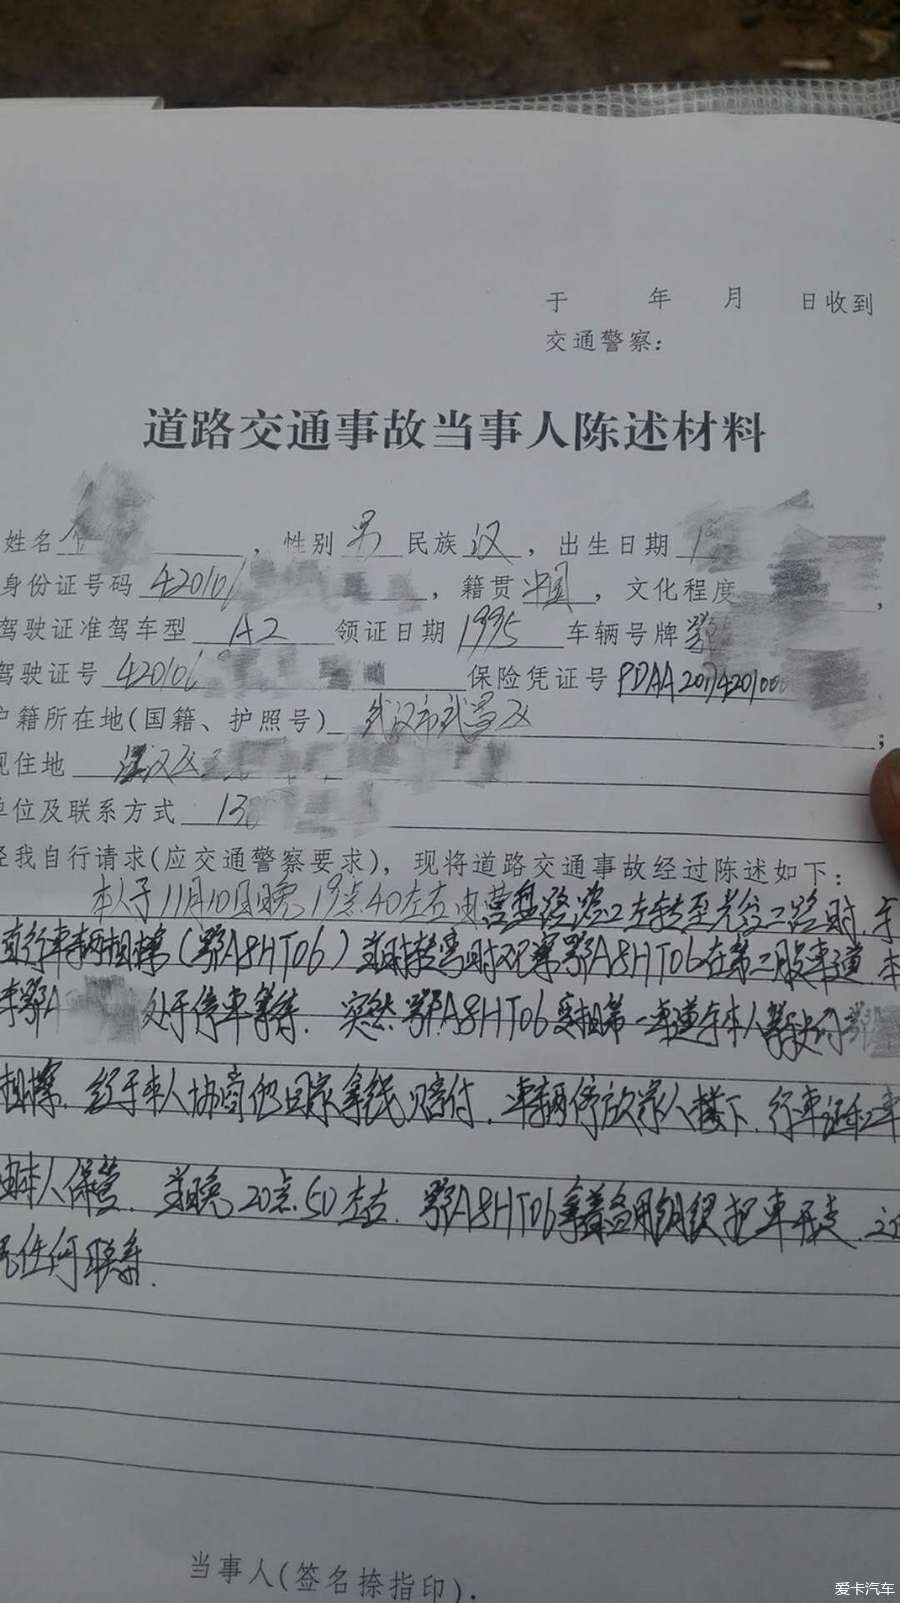 于 年 月 日收到
交通警察：
道路交通事故当事人陈述材料
姓名 ，性别 男 民族 汉 ，出生日期 1
身份证号码 420106 ，籍贯 中国 ，文化程度 ，
驾驶证准驾车型 A2 领证日期 1995 车辆号牌 鄂
驾驶证号 420106 保险凭证号 PDAA20174201000
户籍所在地(国籍、护照号) 武汉市武昌区 ；
现住地 江汉区
单位及联系方式 13
经我自行请求(应交通警察要求)，现将道路交通事故经过陈述如下：
本人于11月10日晚19点40左右由营盘路 左转至 二路时，与
直行车辆相擦(鄂A8HT06)当时转弯时观察鄂A8HT06在第二股车道，本
车鄂A 处于停车等待．突然鄂A8HT06变相第一车道与本人 鄂
相擦．经于本人协商他回家拿钱赔付．车辆停放家人楼下．行车证和车
由本人保管．当晚20点50左右．鄂A8HT06拿着备用钥匙把车开走．
任何联系．
当事人(签名捺指印)．
爱卡汽车